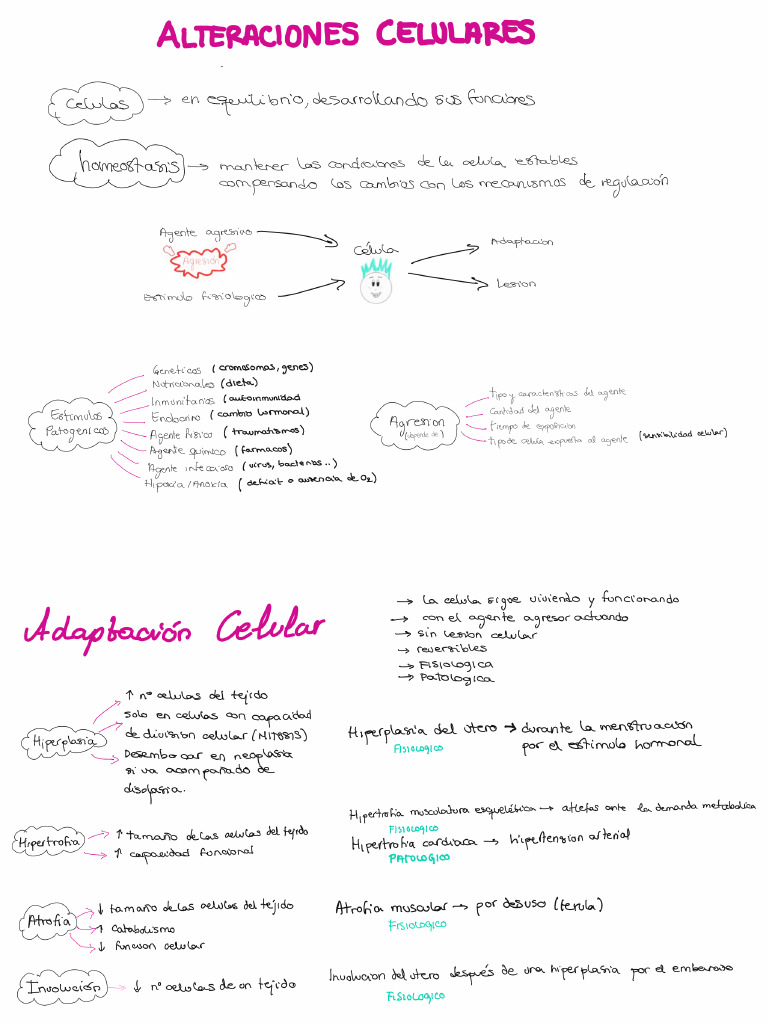 ALTERACIONES CELULARES
Celulas → en equilibrio, desarrollando sus funciones
homeostasis → mantener las condiciones de la celula estables
compensando los cambios con los mecanismos de regulación
Agente agresivo
Agresión
Estimulo fisiologico
Célula
Adaptacion
Lesion
Estimulos
Patogenicos
Geneticos (cromosomas, genes)
Nutricionales (dieta)
Inmunitarios (autoinmunidad
Endocrino (cambio hormonal)
Agente fisico (traumatismos)
Agente quimico (farmacos)
Agente infeccioso (virus, bacterias..)
Hipoxia/Anoxia (deficit o ausencia de O2)
Agresion
(depende de)
tipo y caracteristicas del agente
Cantidad del agente
tiempo de exposicion
tipo de celula expuesta al agente (sensibilidad celular)
Adaptación Celular
→ la celula sigue viviendo y funcionando
→ con el agente agresor actuando
→ sin lesion celular
→ reversibles
→ Fisiologica
→ Patologica
Hiperplasia
↑ nº celulas del tejido
solo en celulas con capacidad
de division celular (MITOSIS)
Desembocar en neoplasia
si va acompañado de
displasia.
Hiperplasia del utero → durante la menstruacion
por el estimulo hormonal
Fisiologico
Hipertrofia
↑ tamaño de las celulas del tejido
↑ capacidad funcional
Hipertrofia musculatura esquelética → atletas ante la demanda metabolica
Fisiologico
Hipertrofia cardiaca → hipertension arterial
PATOLOGICO
Atrofia
↓ tamaño de las celulas del tejido
↑ catabolismo
↓ funcion celular
Atrofia muscular → por desuso (ferula)
Fisiologico
Involución
↓ nº celulas de un tejido
Involucion del utero después de una hiperplasia por el embarazo
Fisiologico